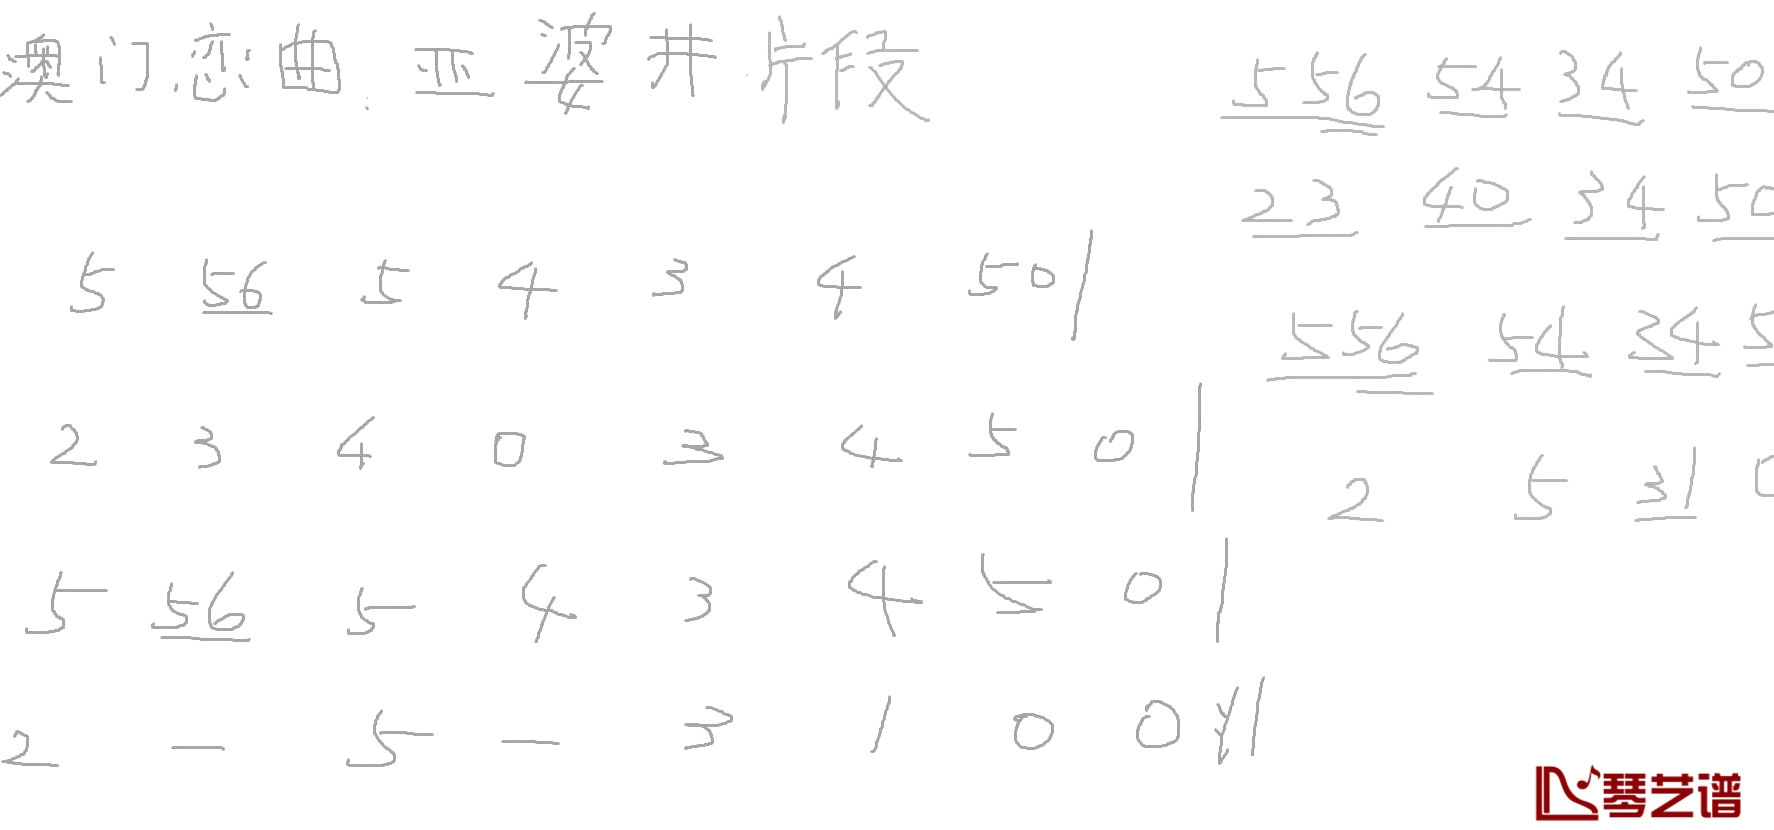 澳门恋曲.亚婆井片段
5 56 5 4 3 4 5 0 |
2 3 4 0 3 4 5 0 |
5 56 5 4 3 4 5 0 |
2 — 5 — 3 1 0 0 ||
556 54 34 50
23 40 34 50
556 54 34 5
2 5 31 0
琴艺谱